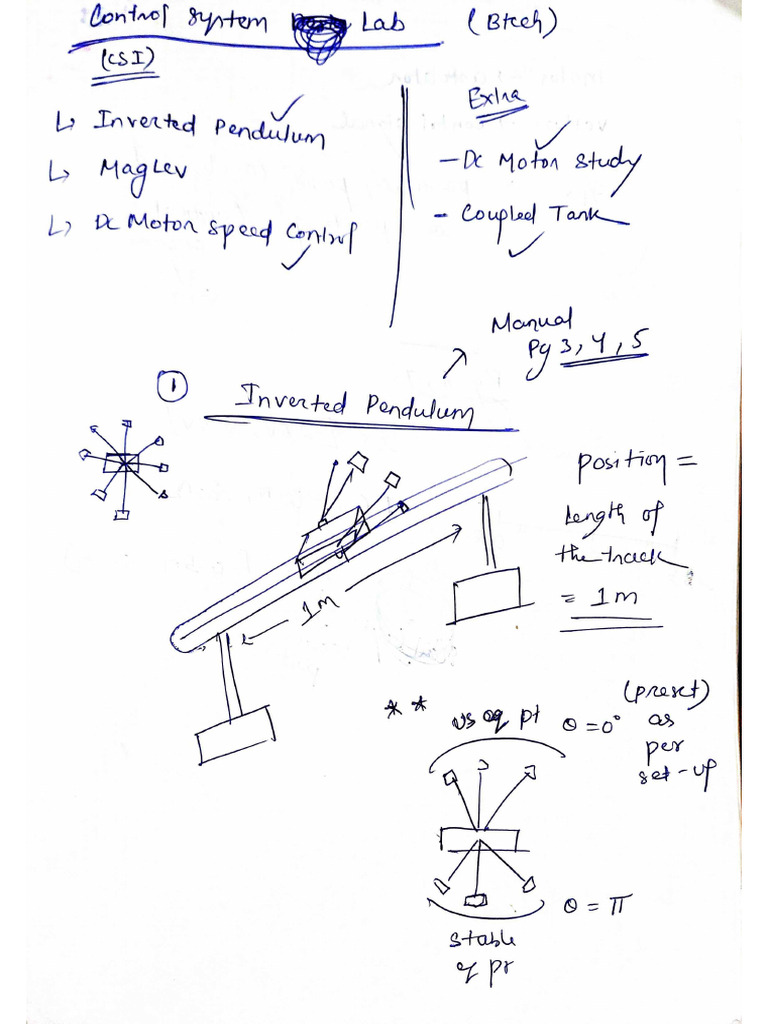 Control System Lab (Btech)
(CSI)
↳ Inverted Pendulum ✓
↳ MagLev
↳ DC Motor Speed Control ✓
Extra
- DC Motor Study ✓
- Coupled Tank ✓
Manual
Pg 3, 4, 5
① Inverted Pendulum
Position =
Length of
the track
= 1m
1m
** eq pt θ = 0° (preset)
as
per
set-up
θ = π
stable